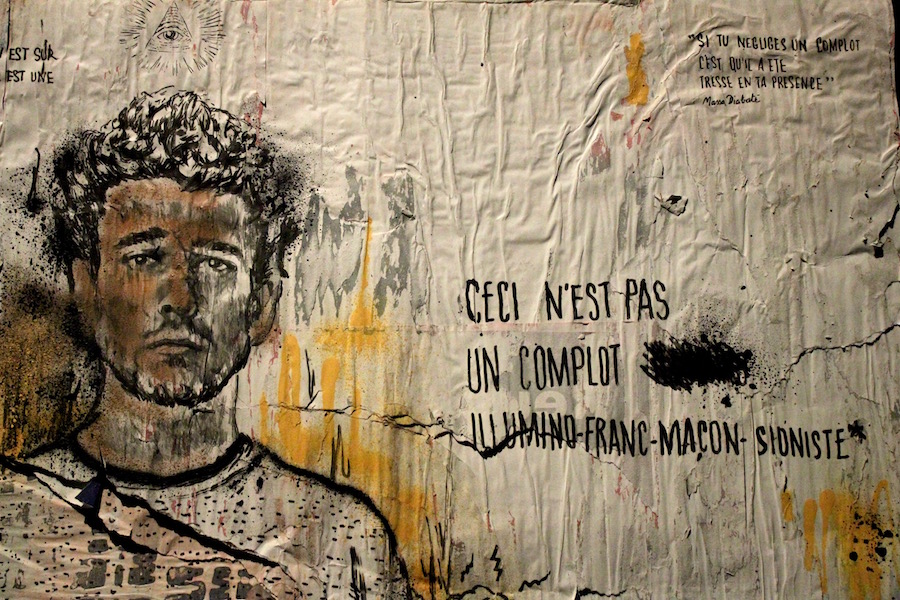 EST SUR
EST UNE
"SI TU NEGLIGES UN COMPLOT
C'EST QU'IL A ETE
TRESSE EN TA PRESENCE"
Massa Diabaté
CECI N'EST PAS
UN COMPLOT
ILLUMINO-FRANC-MAÇON-SIONISTE*